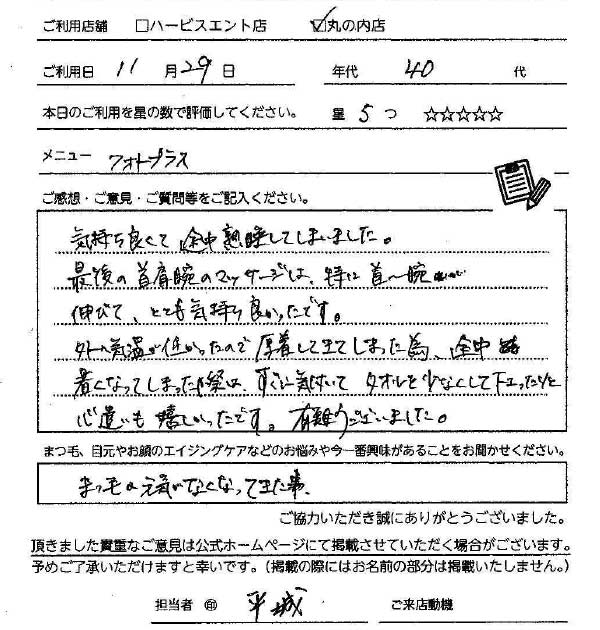 ご利用店舗 □ハービスエント店 ☑丸の内店
ご利用日 11 月 29 日 年代 40 代
本日のご利用を星の数で評価してください。 星 5 つ ☆☆☆☆☆
メニュー フォトプラス
ご感想・ご意見・ご質問等をご記入ください。
気持ち良くて 途中熟睡してしまいました。
最後の首肩腕のマッサージは、特に首〜腕が
伸びて、とても気持ち良かったです。
外の気温が低かったので厚着して来てしまった為、途中
暑くなってしまった際は、すぐに気付いて タオルを少なくして下さったりと
心遣いも嬉しかったです。有難うございました。
まつ毛、目元やお顔のエイジングケアなどのお悩みや今一番興味があることをお聞かせください。
まつ毛の元気がなくなってきた事、
ご協力いただき誠にありがとうございました。
頂きました貴重なご意見は公式ホームページにて掲載させていただく場合がございます。
予めご了承いただけますと幸いです。(掲載の際にはお名前の部分は掲載いたしません。)
担当者 ㊞ 平城 ご来店動機